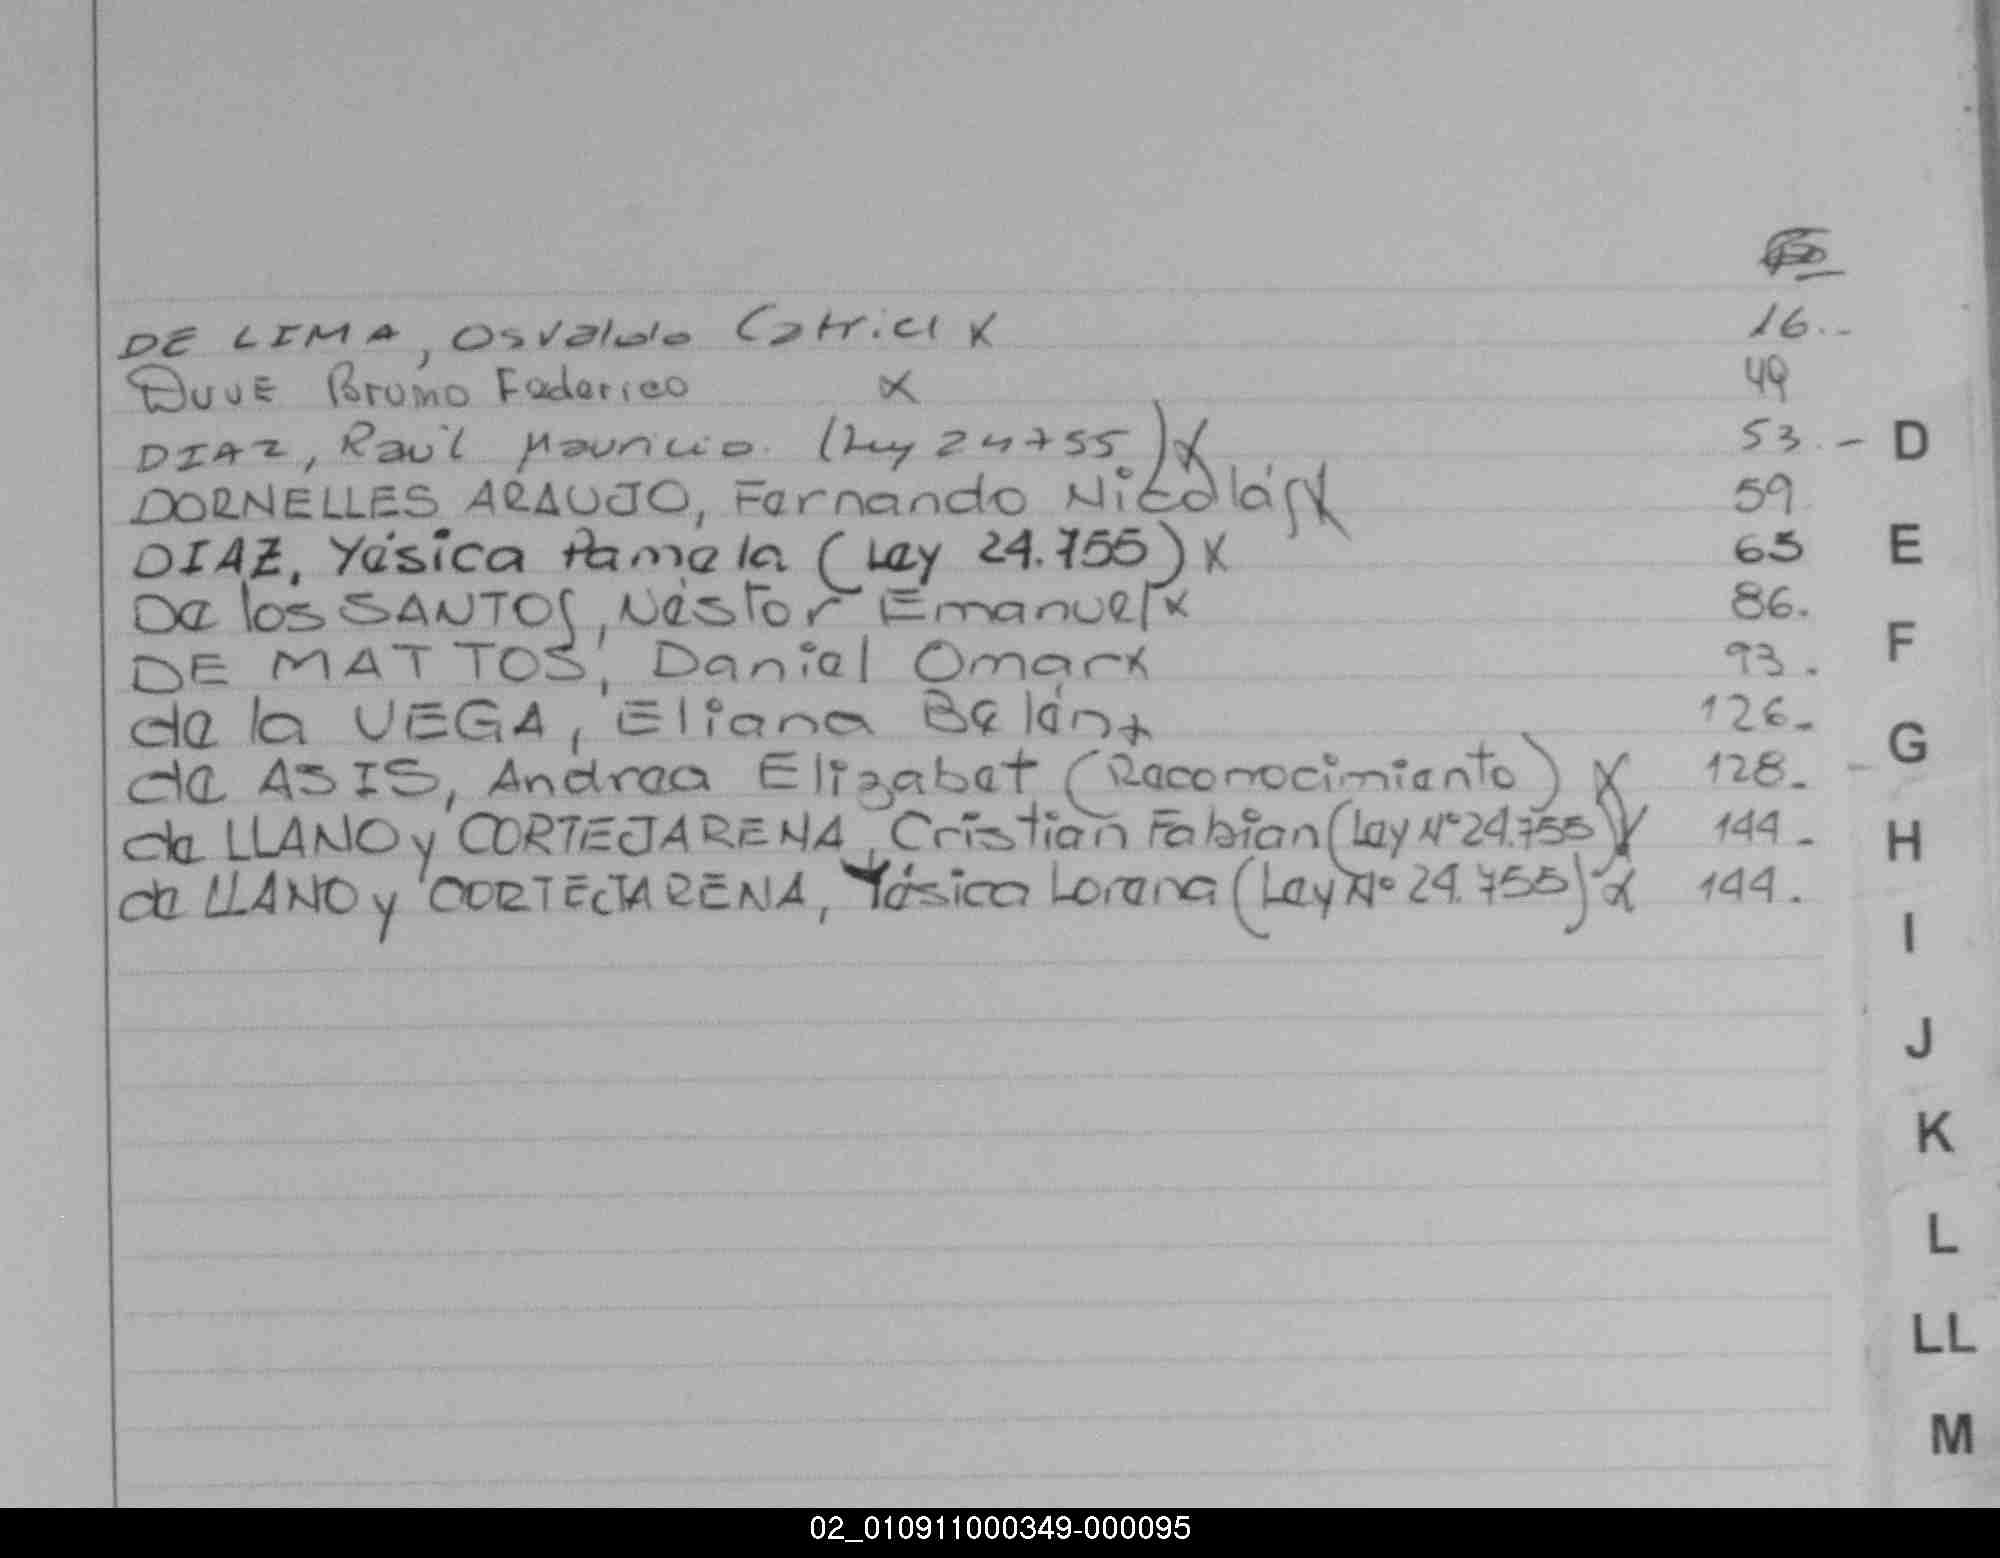 DE LIMA, Osvaldo Catriel X 16.-
DUVE Bruno Federico X 49
DIAZ, Raúl Mauricio. (Ley 24755) X 53.-
DORNELLES ARAUJO, Fernando Nicolás X 59
DIAZ, Yésica Pamela (Ley 24.755) X 65
De los SANTOS, Néstor Emanuel X 86.
DE MATTOS, Daniel Omar X 93.
de la VEGA, Eliana Belén X 126.-
de ASIS, Andrea Elizabet (Reconocimiento) X 128.-
de LLANO y CORTEJARENA, Cristian Fabian (Ley Nº 24.755) X 144.-
de LLANO y CORTEJARENA, Yésica Lorena (Ley Nº 24.755) X 144.
D
E
F
G
H
I
J
K
L
LL
M
02_010911000349-000095